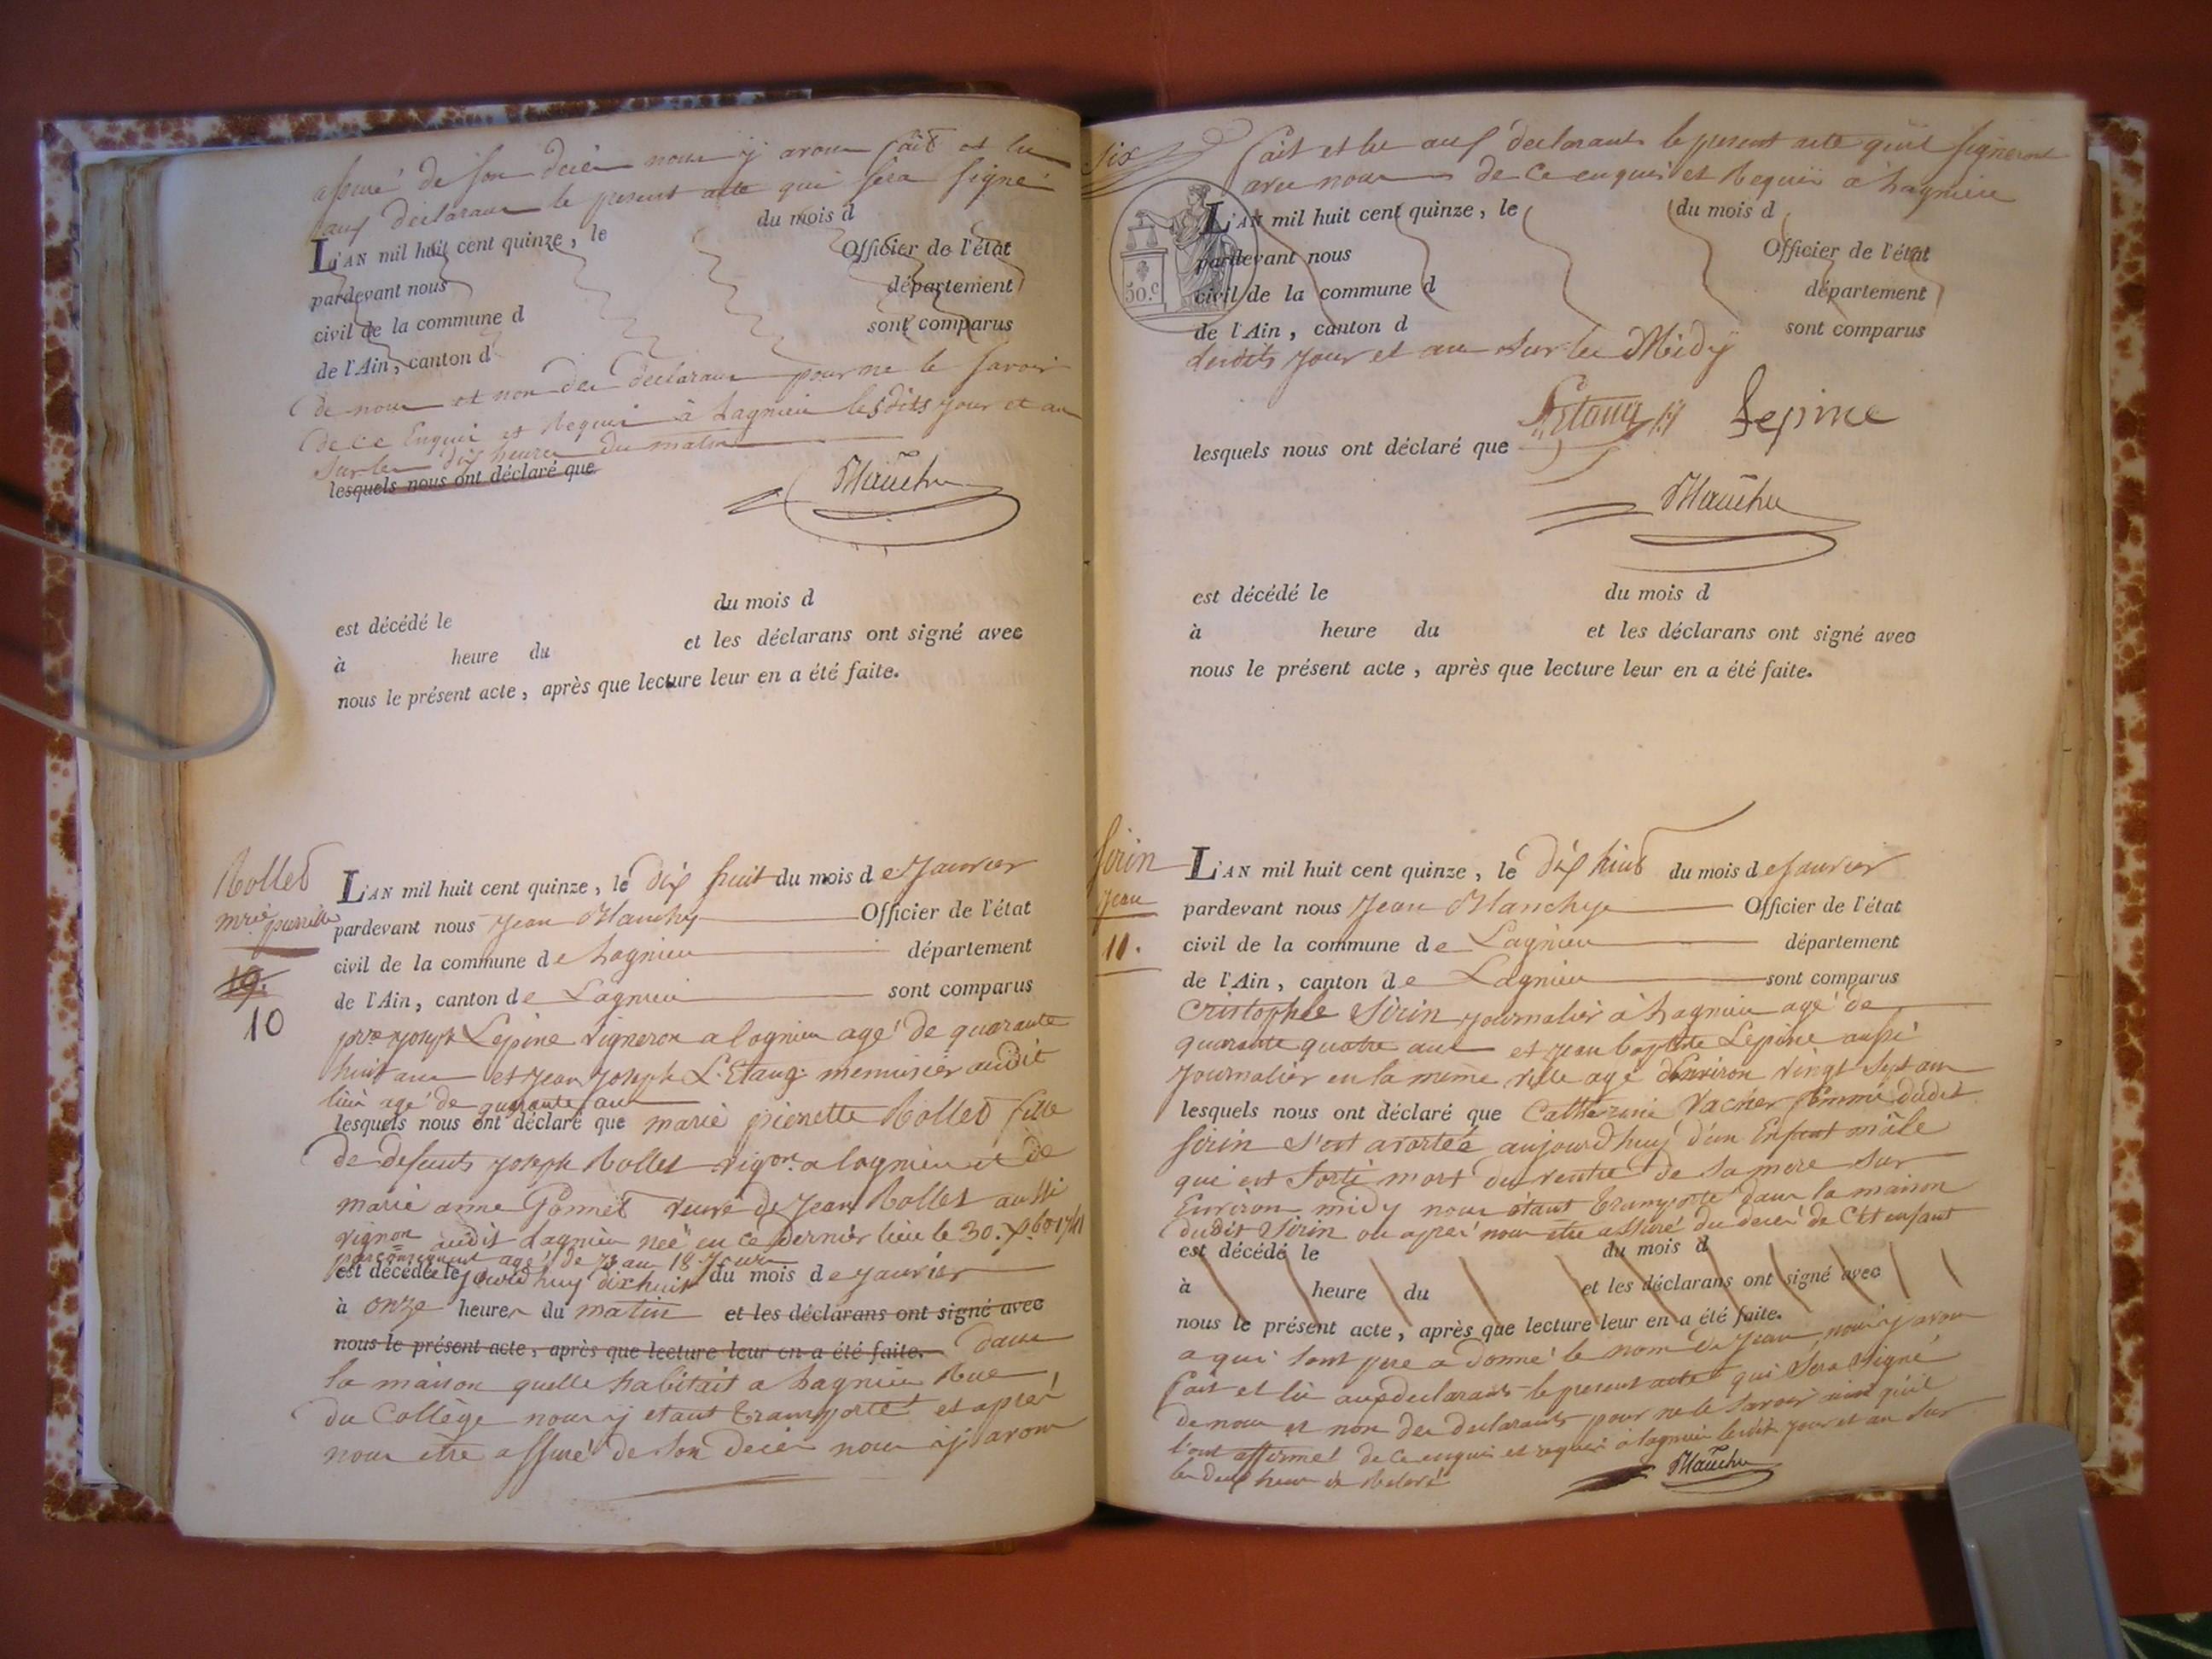 assuré de son decès nous y avons fait et lu
aux déclarans le present acte qui sera signé
L'AN mil huit cent quinze, le du mois d
pardevant nous Officier de l'état
civil de la commune d département
de l'Ain, canton d sont comparus
de nous et non des declarans pour ne le savoir
de ce Enquis et Requis à Lagnieu lesdits jour et an
sur les dix heures du matin
lesquels nous ont déclaré que
Blanchy
est décédé le du mois d
à heure du et les déclarans ont signé avec
nous le présent acte, après que lecture leur en a été faite.
Rollet
mrie pierrette
10
L'AN mil huit cent quinze, le dix huit du mois de Janvier
pardevant nous Jean Blanchy Officier de l'état
civil de la commune de Lagnieu département
de l'Ain, canton de Lagnieu sont comparus
joseph Lepine vigneron a lagnieu agé de quarante
huit ans et Jean Joseph L'Etang menuisier audit
lieu agé de quarante ans
lesquels nous ont déclaré que marie pierrette Rollet fille
de defunts joseph Rollet vigon a lagnieu et de
marie anne Ponnet veuve de Jean Rollet aussi
vignon audit Lagnieu née en ce dernier lieu le 30. 1741
par consequent agé de 73 ans 18 jours
est décédée le jourdhuy dix huit du mois de janvier
à onze heures du matin et les déclarans ont signé avec
nous le présent acte, après que lecture leur en a été faite. dans
la maison quelle habitait a Lagnieu Rue
du Collège nous y etant transporté et après
nous etre assuré de son decès nous y avons
six
fait et lu aux declarants le present acte quil signeront
avec nous de ce enquis et Requis à Lagnieu
L'AN mil huit cent quinze, le du mois d
pardevant nous Officier de l'état
civil de la commune d département
de l'Ain, canton d sont comparus
50.c
lesdits jour et an sur les Midy
Letang Lepine
lesquels nous ont déclaré que
Blanchy
est décédé le du mois d
à heure du et les déclarans ont signé avec
nous le présent acte, après que lecture leur en a été faite.
Sirin
Jean
11.
L'AN mil huit cent quinze, le dix huit du mois de Janvier
pardevant nous Jean Blanchy Officier de l'état
civil de la commune de Lagnieu département
de l'Ain, canton de Lagnieu sont comparus
Cristophle Sirin journalier à Lagnieu agé de
quarante quatre ans et jean baptiste Lepine aussi
journalier en la meme ville agé d'Environ vingt sept ans
lesquels nous ont déclaré que Catherine Vacher femme dudit
Sirin s'est avortée aujourdhuy d'un Enfant mâle
qui est sorti mort du ventre de sa mere sur
Environ midy nous étant transporté dans la maison
dudit Sirin ou après nous etre assuré du decès de C'et enfant
est décédé le du mois d
à heure du et les déclarans ont signé avec
nous le présent acte, après que lecture leur en a été faite.
a qui sont pere a donné le nom de Jean nous y avons
fait et lu aux declarans le present acte qui sera signé
de nous et non des declarants pour ne le savoir ainsi quil
l'ont affirmé de ce enquis et requis à lagnieu lesdits jour et an sur
les deux heures de Relevé
Blanchy